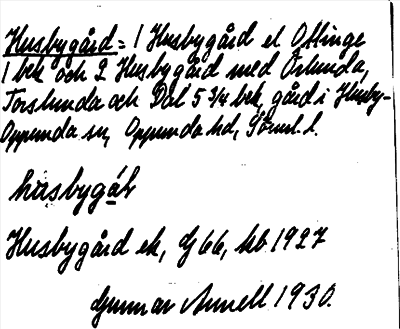 Husbygård = 1 Husbygård el Ottinge
1 bek och 2 Husbygård med Örlunda,
Torslunda och Dal 5 3/4 bek, gård i Husby-
Oppunda sn, Oppunda hd, Söml. l.
husbygåɭ
Husbygård ek, dj 66, kb 1927
Gunnar Annell 1930.